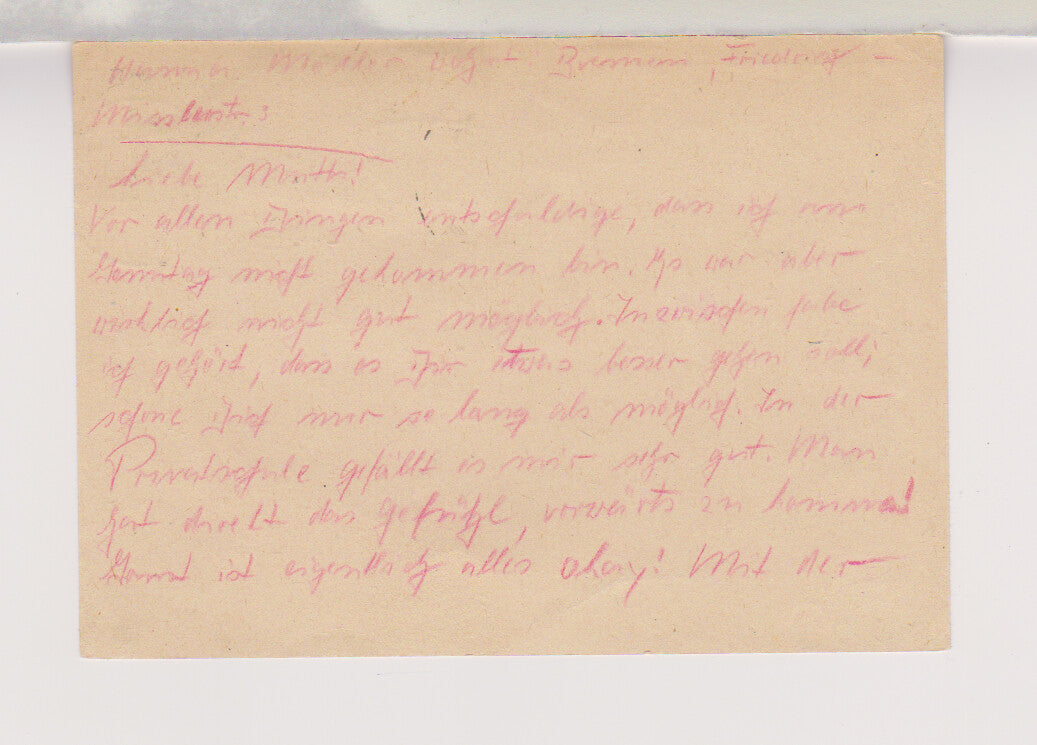 wohnt Bremen, Friedrich-
Misslerstr. 3
Liebe Mutti!
Vor allen Dingen entschuldige, dass ich am
Sonntag nicht gekommen bin. Es war aber
wirklich nicht gut möglich. Inzwischen habe
ich gehört, dass es Dir etwas besser gehen soll;
schone Dich nur so lang als möglich. In der
Privatschule gefällt es mir sehr gut. Man
hat direkt das Gefühl, vorwärts zu kommen!
Sonst ist eigentlich alles okay! Mit der